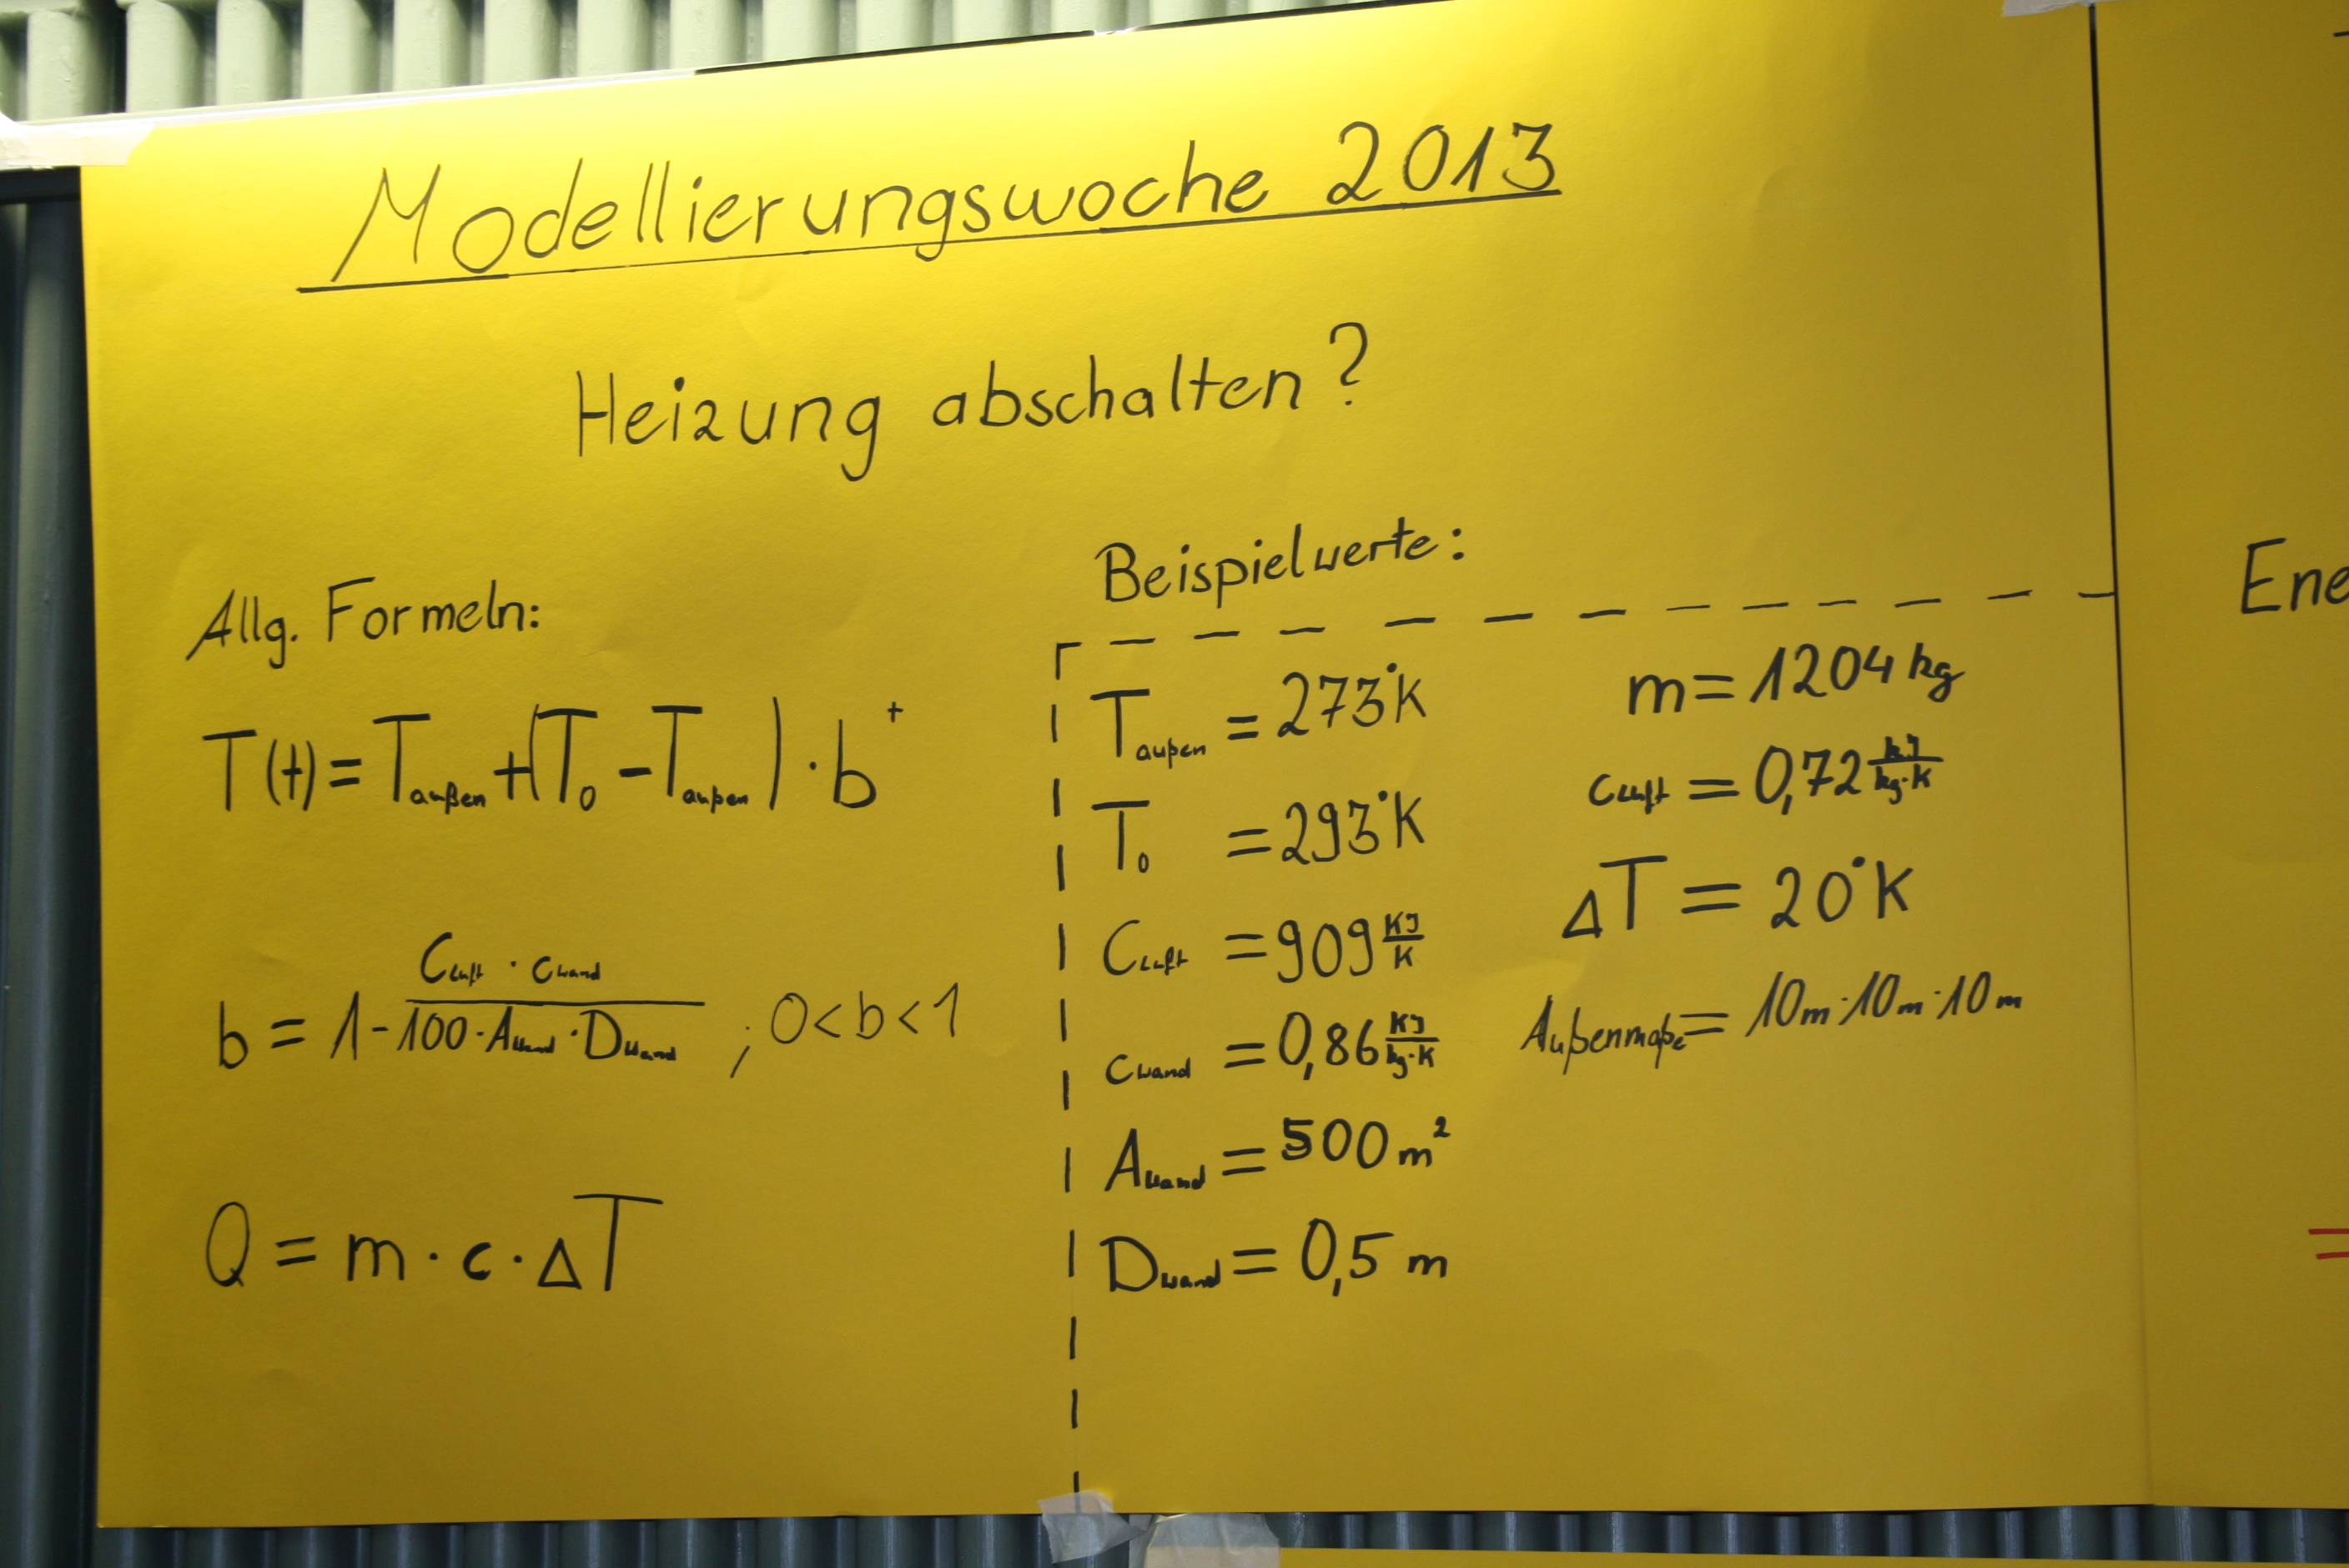 Modellierungswoche 2013
Heizung abschalten?
Allg. Formeln:
T(t) = Taußen + (T0 - Taußen) · b^t
b = 1 - (CLuft · cWand)/(100 · AWand · DWand) ; 0 < b < 1
Q = m · c · ΔT
Beispielwerte:
Taußen = 273°K
T0 = 293°K
CLuft = 909 KJ/K
cWand = 0,86 KJ/kg·K
AWand = 500 m²
DWand = 0,5 m
m = 1204 kg
cLuft = 0,72 kJ/kg·K
ΔT = 20°K
Außenmaße = 10m · 10m · 10m
Ene